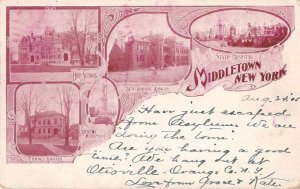 State Hospital
High School
Middletown
New York
Aug 24 '05
Thrall Library
Have just escaped
from Asylum. We are
"Doing the town"
Are you having a good
time? We hang out at
Otisville - Orange Co. N.Y.
Love from Grace & Kate.